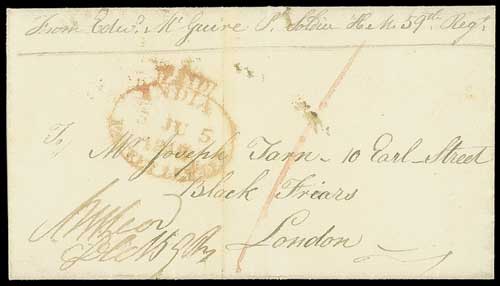 From Edwd. Mc Guire Pt. Soldier H M 59th Regt.
INDIA
JU 5
To Mr Joseph Tarn - 10 Earl - Street
Black Friars
London